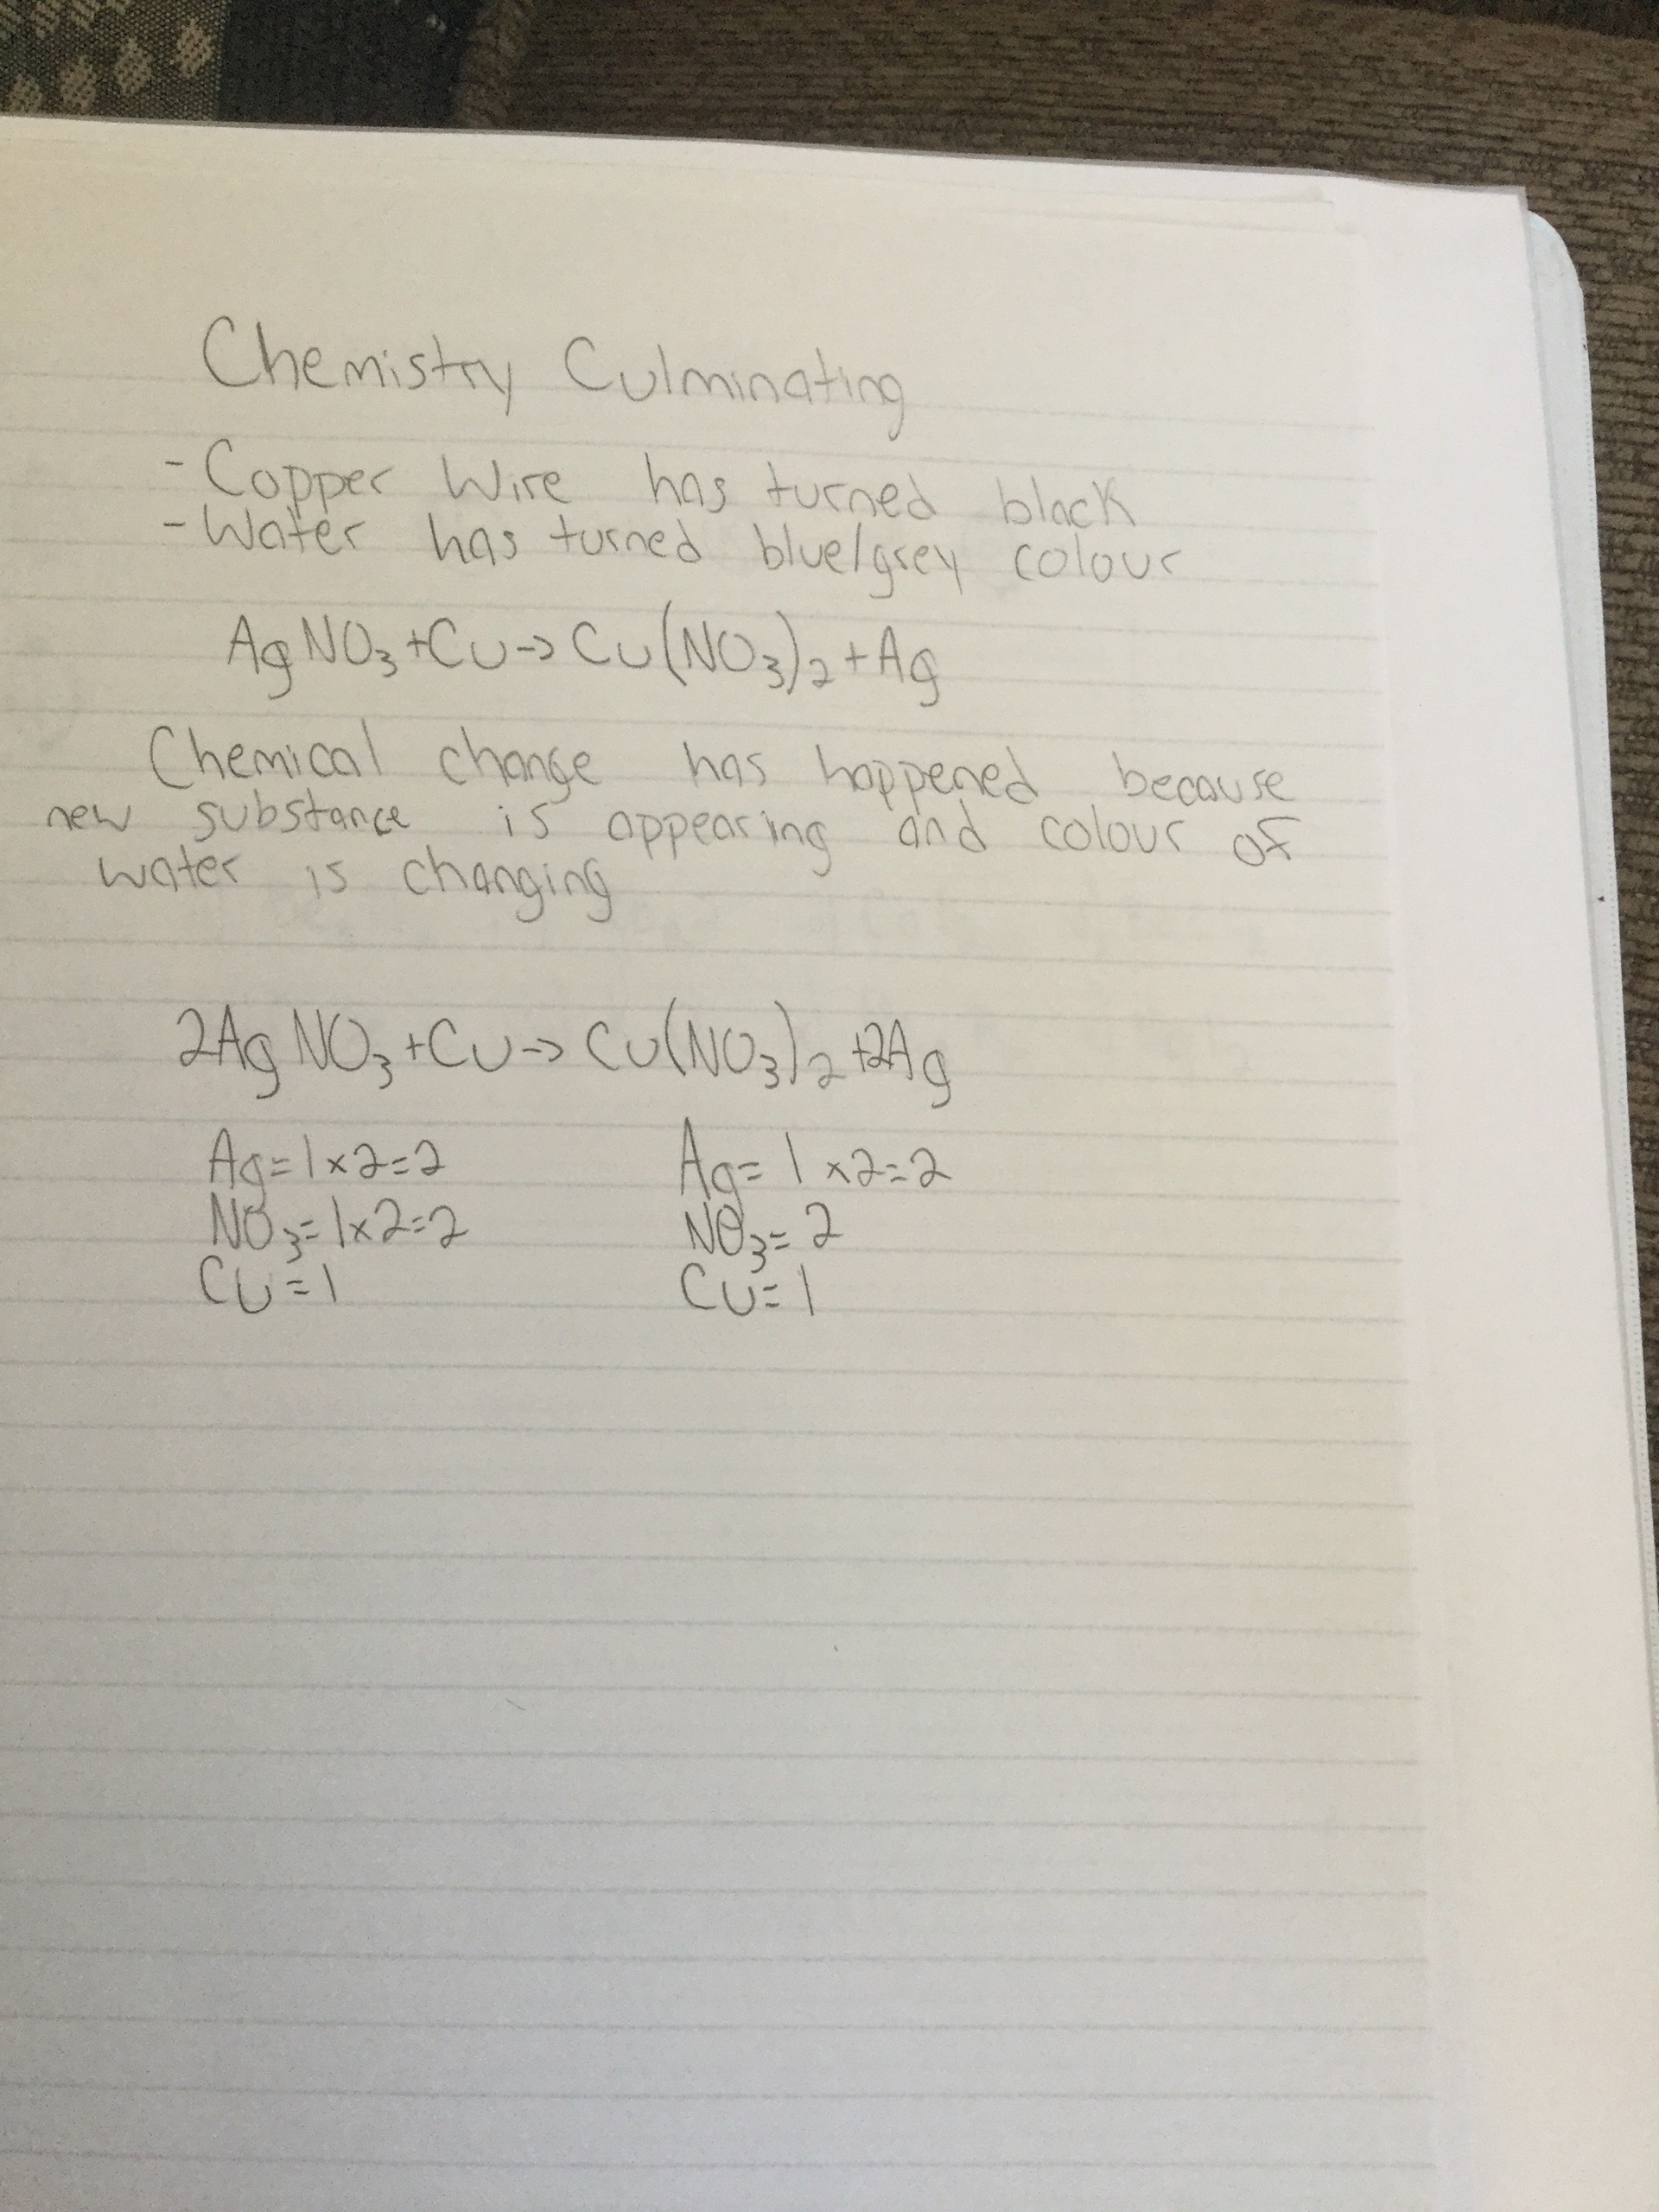 Chemistry Culminating
- Copper Wire has turned black
- Water has turned blue/grey colour
AgNO₃+Cu→Cu(NO₃)₂+Ag
Chemical change has happened because
new substance is appearing and colour of
water is changing
2AgNO₃+Cu→Cu(NO₃)₂+2Ag
Ag=1×2=2 Ag=1×2=2
NO₃=1×2=2 NO₃=2
Cu=1 Cu=1